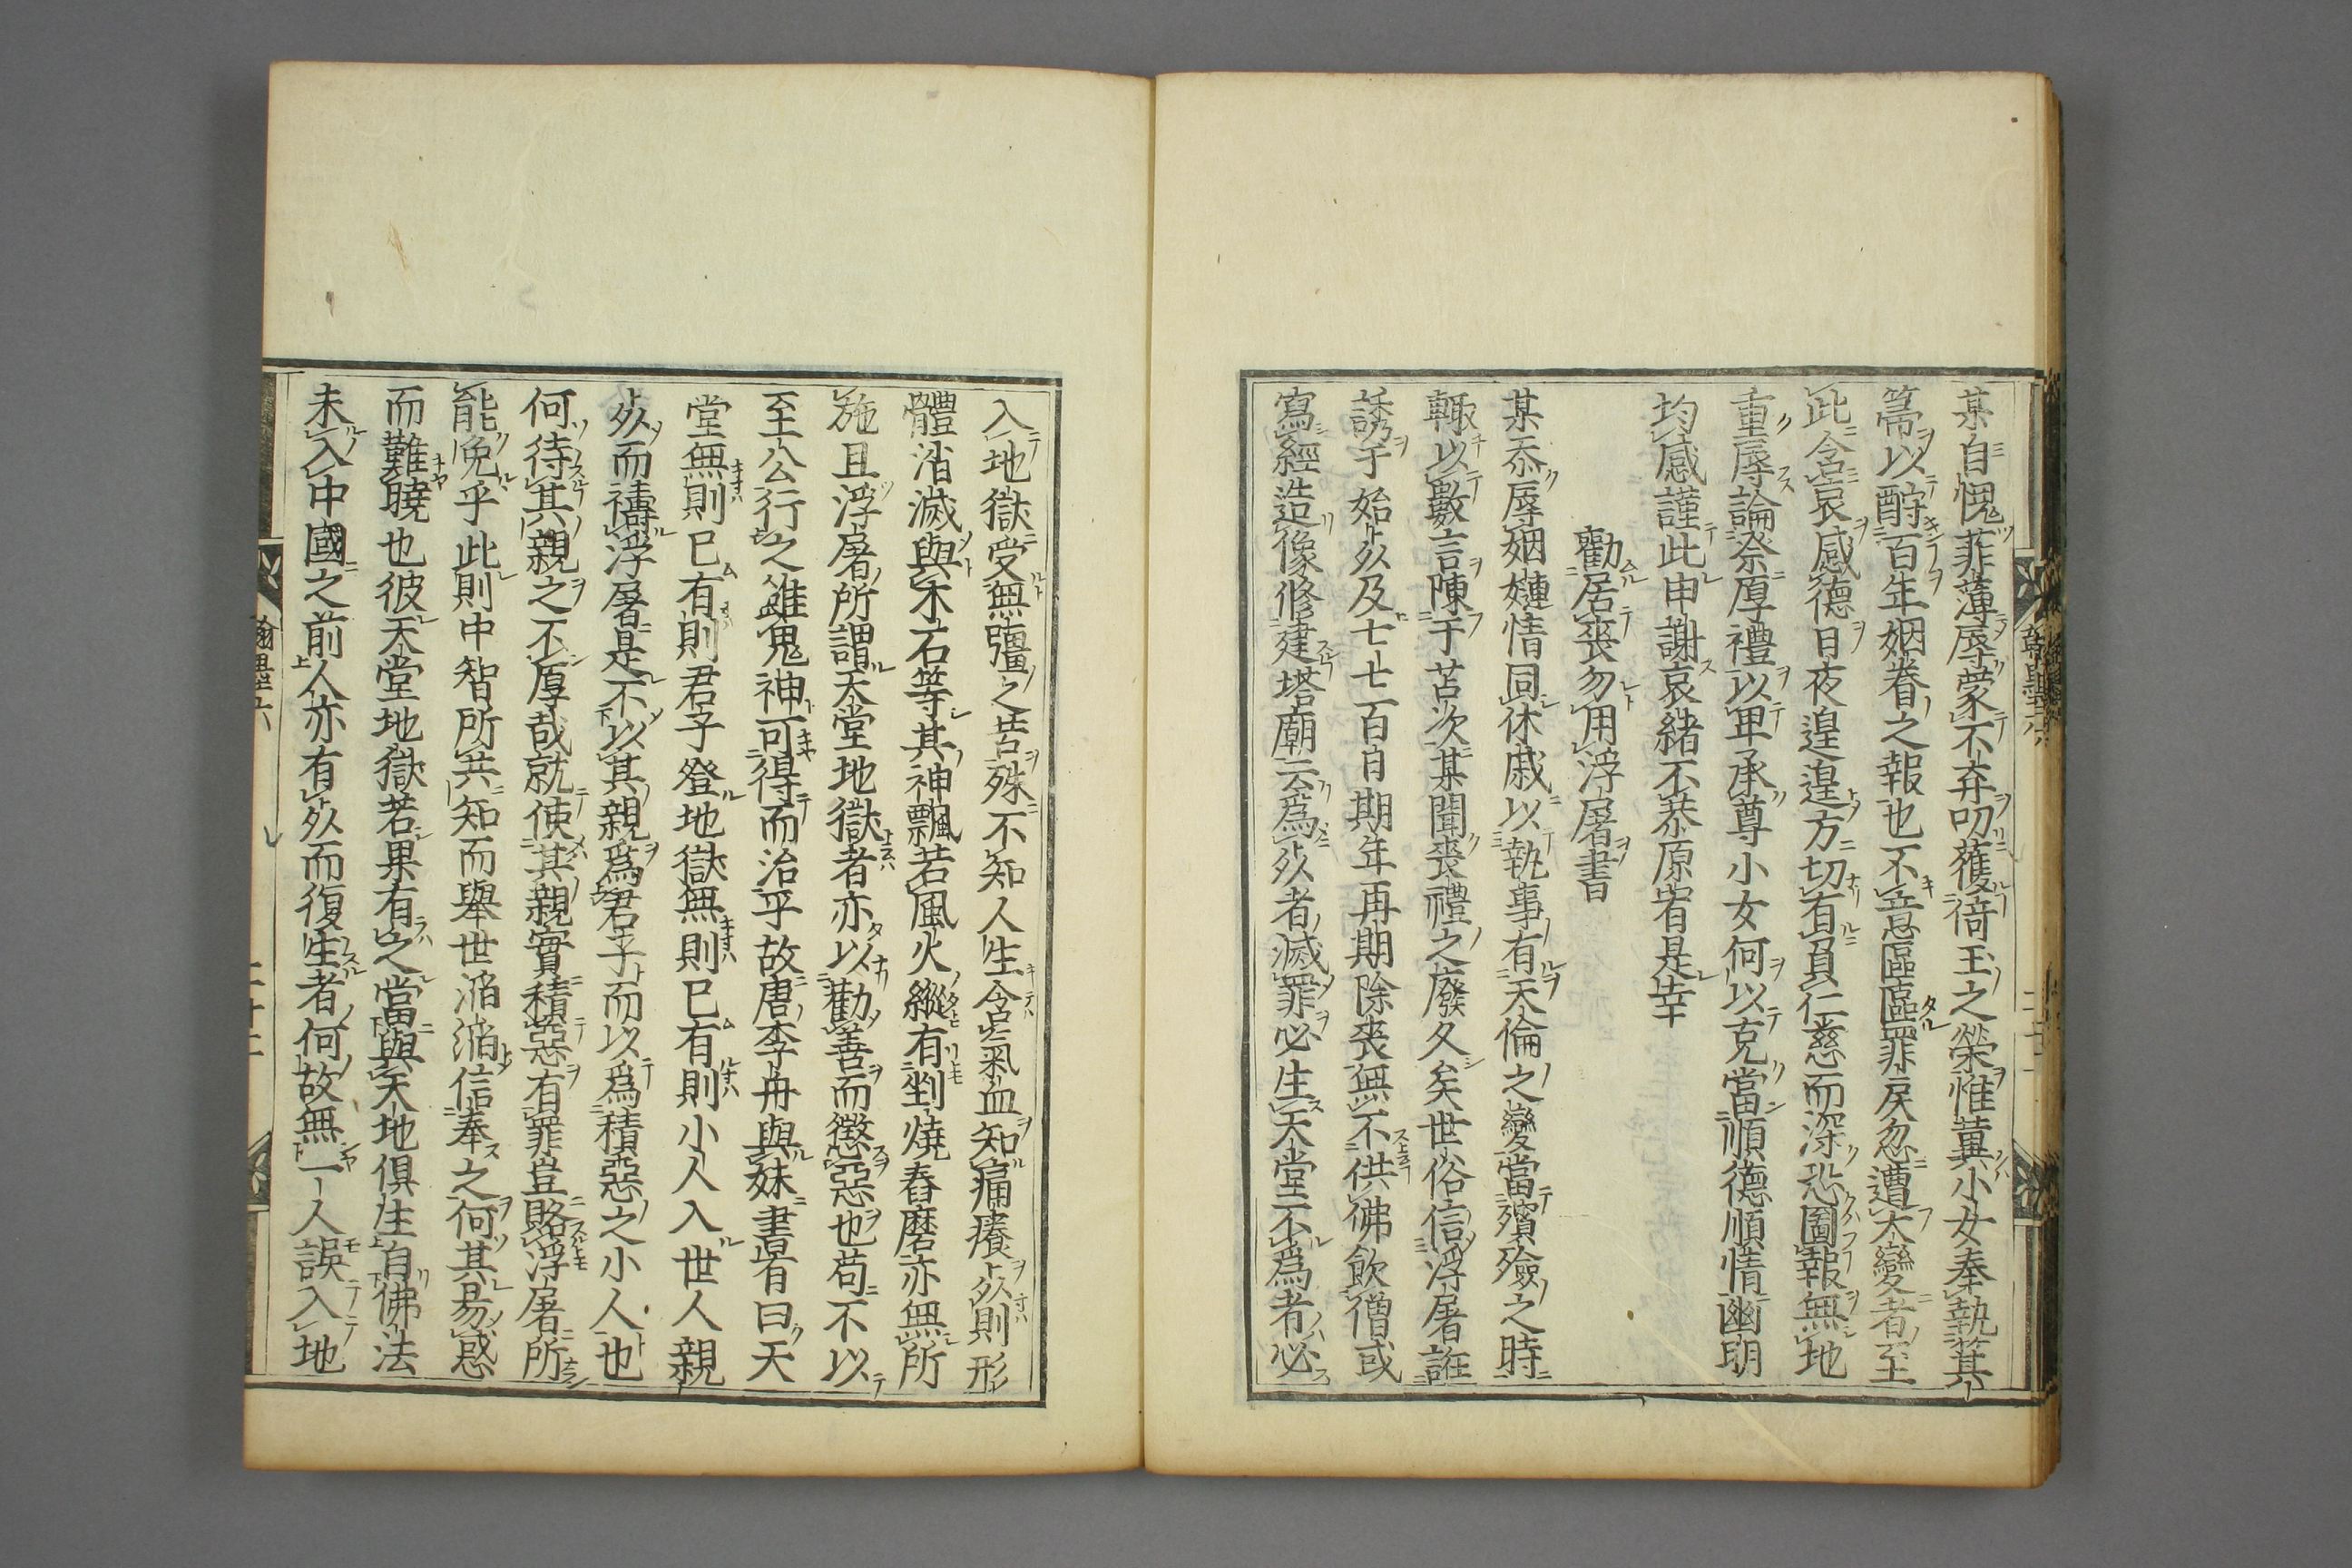 某自愧菲薄辱蒙不弃叨獲倚玉之榮惟冀小女奉執箕
箒以酧百年姻眷之報也不意區區罪戾忽遭大變者至
此含哀感德日夜遑遑方切有負仁慈而深恐圖報無地
重辱論祭厚禮以卑承尊小女何以克當順德順情幽明
均感謹此申謝哀緒不恭原宥是幸
勸居喪勿用浮屠書
某忝辱姻婣情同休戚以執事有天倫之變當殯殮之時
輙以數言陳于苫次某聞喪禮之廢久矣世俗信浮屠誑
誘于始死及七七百日期年再期除喪無不供佛飲僧或
寫經造像修建塔廟云爲死者滅罪必生天堂不爲者必
入地獄受無彊之苦殊不知人生含氣血知痛癢死則形
體消滅與木石等其神飄若風火縱有剉燒舂磨亦無所
施且浮屠所謂天堂地獄者亦以勸善而懲惡也苟不以
至公行之雖鬼神可得而治乎故唐李舟與妹書有曰天
堂無則已有則君子登地獄無則已有則小人入世人親
死而禱浮屠是不以其親爲君子而以爲積惡之小人也
何待其親之不厚哉就使其親實積惡有罪豈賂浮屠所
能免乎此則中智所共知而舉世滔滔信奉之何其易惑
而難曉也彼天堂地獄若果有之當與天地俱生自佛法
未入中國之前人亦有死而復生者何故無一人誤入地
翰墨六
二十二